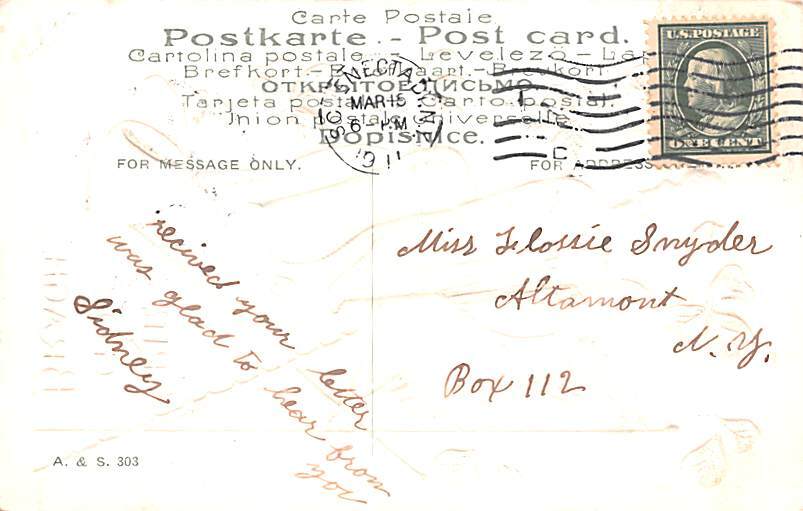 Carte Postale
Postkarte. - Post card.
Cartolina postale - Levelező - Lap
Brefkort.- Briefkaart.- Brevkort.
ОТКРЫТОЕ ПИСЬМО
Tarjeta postal. Carto postal.
Union postale universelle
Dopisnice.
SCHENECTADY N.Y.
MAR 15
6 - PM
1911
U.S. POSTAGE
ONE CENT
FOR MESSAGE ONLY.
FOR ADDRESS
recived your letter
was glad to hear from
you
Sidney
Miss Flossie Snyder
Altamont
N.Y.
Box 112
A. & S. 303